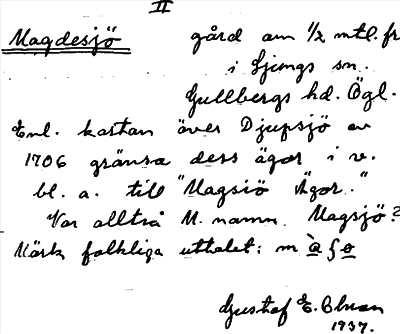 II
Magdesjö gård om 1/2 mtl. fr
i Ljungs sn.
Gullbergs hd. Ögl.
Enl. kartan över Djupsjö av
1706 gränsa dess ägor i v.
bl. a. till "Magsiö Ägor."
Var alltså M. namn Magsjö?
Märk folkliga uttalet: m
Gustaf E.
1937.